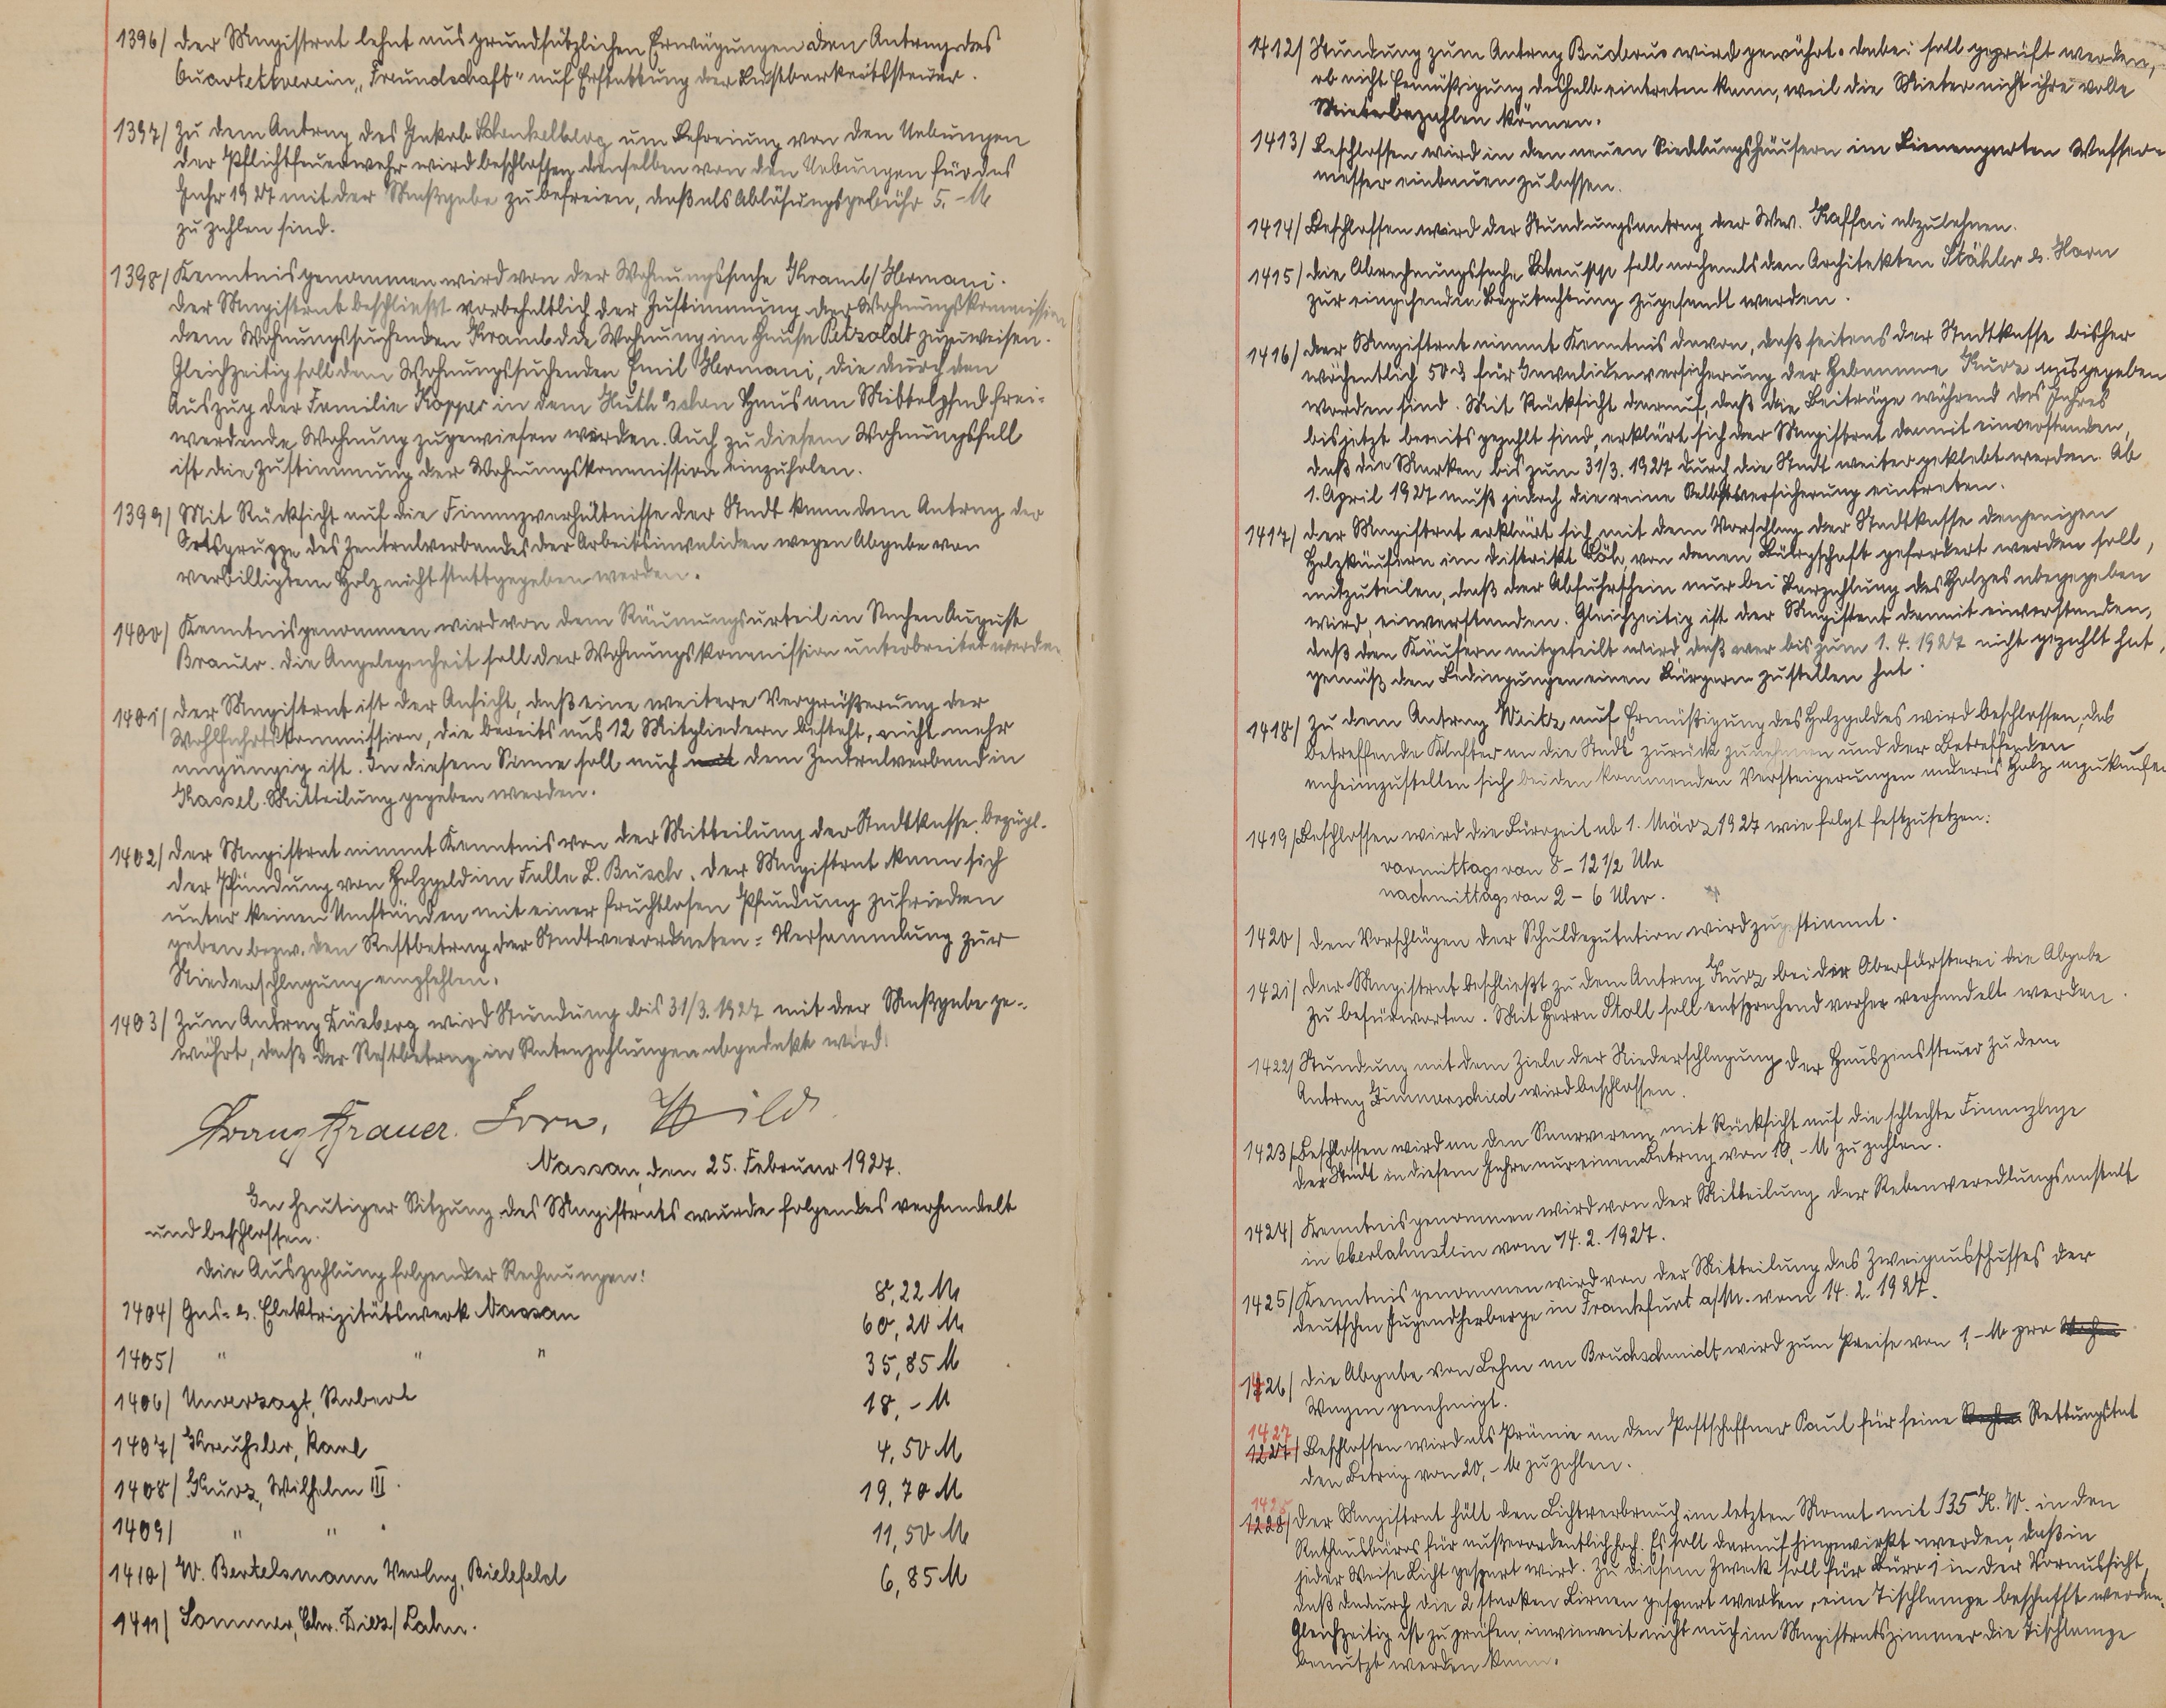 1396/ Der Magistrat lehnt aus grundsätzlichen Erwägungen den Antrag des
Quartettverein „Freundschaft" auf Erstattung der Lustbarkeitssteuer.
1397/ Zu dem Antrag des Jakob um Befreiung von den Uebungen
der Pflichtfeuerwehr wird beschlossen denselben von den Uebungen für das
Jahr 1927 mit der Maßgabe zu befreien, daß als Ablösungsgebühr 5,- M
zu zahlen sind.
1398/ Kenntnis genommen wird von der Wohnungssache Kramb/Hermani.
Der Magistrat beschließt vorbehaltlich der Zustimmung der Wohnungskommission
dem Wohnungssuchenden Kramb die Wohnung im Hause Petzoldt zuzuweisen.
Gleichzeitig soll dem Wohnungssuchenden Emil Hermani, die durch den
Auszug der Familie Kopper in dem Huth'schen Haus am Mittelpfad frei-
werdende Wohnung zugewiesen werden. Auch zu diesem Wohnungsfall
ist die Zustimmung der Wohnungskommission einzuholen.
1399/ Mit Rücksicht auf die Finanzverhältnisse der Stadt kann dem Antrag der
Ortsgruppe des Zentralverbandes der Arbeitsinvaliden wegen Abgabe von
verbilligtem Holz nicht stattgegeben werden.
1400/ Kenntnis genommen wird von dem Räumungsurteil in Sachen August
Bräuer. Die Angelegenheit soll der Wohnungskommission unterbreitet werden
1401/ Der Magistrat ist der Ansicht, daß eine weitere Vergrößerung der
Wohlfahrtskommission, die bereits aus 12 Mitgliedern besteht, nicht mehr
angängig ist. In diesem Sinne soll auch mit dem Zentralverband in
Kassel Mitteilung gegeben werden.
1402/ Der Magistrat nimmt Kenntnis von der Mitteilung der Stadtkasse bezügl.
der Pfändung von Holzgeld im Falle L. Busch. Der Magistrat kann sich
unter keinen Umständen mit einer fruchtlosen Pfändung zufrieden
geben bezw. den Restbetrag der Stadtverordneten-Versammlung zur
Niederschlagung empfehlen.
1403/ Zum Antrag wird Stundung bis 31/3. 1927 mit der Maßgabe ge-
währt, daß der Restbetrag in Ratenzahlungen abgedeckt wird.
Franz Grauer. Lorn. Wild
Nassau, den 25. Februar 1927.
In heutiger Sitzung des Magistrats wurde folgendes verhandelt
und beschlossen.
Die Auszahlung folgender Rechnungen:
1404/ Gas- u. Elektrizitätswerk Nassau 8,22 M
1405/ " " " 60,20 M
1406/ Unverzagt, Robert 35,85 M
1407/ Kreuhsler, Karl 18,- M
1408/ Kurz, Wilhelm III. 4,50 M
1409/ " " " 19,70 M
1410/ W. Bertelsmann Verlag, Bielefeld 11,50 M
1411/ Sommer, Chr. Diez/Lahn. 6,85 M
1412/ Stundung zum Antrag Buderus wird gewährt. Dabei soll geprüft werden,
ob nicht Ermäßigung deshalb eintreten kann, weil die Mieter nicht ihre volle
Miete bezahlen können.
1413/ Beschlossen wird in den neuen Siedlungshäusern im Bienengarten Wasser-
messer einbauen zu lassen.
1414/ Beschlossen wird der Stundungsantrag der Ww. Kaffai abzulehnen.
1415/ Die Abrechnungssache soll nochmals den Architekten Stähler u. Horn
zur eingehenden Begutachtung zugesandt werden.
1416/ Der Magistrat nimmt Kenntnis davon, daß seitens der Stadtkasse bisher
wöchentlich 50 ₰ für Invalidenversicherung der Hebamme Kurz ausgegeben
worden sind. Mit Rücksicht darauf, daß die Beiträge während des Jahres
bis jetzt bereits gezahlt sind, erklärt sich der Magistrat damit einverstanden,
daß die Marken bis zum 31/3. 1927 durch die Stadt weiter geklebt werden. Ab
1. April 1927 muß jedoch die reine Selbstversicherung eintreten.
1417/ Der Magistrat erklärt sich mit dem Vorschlag der Stadtkasse denjenigen
Holzkäufern im Distrikt Löh, von denen Bürgschaft gefordert werden soll,
mitzuteilen, daß der Abfuhrschein nur bei Barzahlung des Holzes abgegeben
wird, einverstanden. Gleichzeitig ist der Magistrat damit einverstanden,
daß den Käufern mitgeteilt wird, daß wer bis zum 1. 4. 1927 nicht gezahlt hat,
gemäß den Bedingungen einen Bürgern zustellen hat.
1418/ Zu dem Antrag auf Ermäßigung des Holzgeldes wird beschlossen, das
betreffende Klafter an die Stadt zurück zunehmen und der Betreffenden
anheimzustellen sich bei den kommenden Versteigerungen anderes Holz anzukaufen
1419/ Beschlossen wird die Bürozeit ab 1. März 1927 wie folgt festzusetzen:
vormittags von 8 - 12 1/2 Uhr
nachmittags von 2 - 6 Uhr.
1420/ Den Vorschlägen der Schuldeputation wird zugestimmt.
1421/ Der Magistrat beschließt zu dem Antrag Kurz bei der Oberförsterei die Abgabe
zu befürworten. Mit Herrn Stoll soll entsprechend vorher verhandelt werden.
1422/ Stundung mit dem Ziele der Niederschlagung der Hauszinssteuer zu dem
Antrag Zimmerschied wird beschlossen.
1423/ Beschlossen wird an den Saarverein mit Rücksicht auf die schlechte Finanzlage
der Stadt in diesem Jahre nur einen Betrag von 10,- M zu zahlen.
1424/ Kenntnis genommen wird von der Mitteilung der Rebenveredlungsanstalt
in Oberlahnstein vom 14. 2. 1927.
1425/ Kenntnis genommen wird von der Mitteilung des Zweigausschusses der
deutschen Jugendherberge in Frankfurt a/M. vom 14. 2. 1927.
1426/ Die Abgabe von Lehm an Bruchschmidt wird zum Preise von 1,- M pro
Wagen genehmigt.
1427
1227/ Beschlossen wird als Prämie an den Postschaffner Paul für seine Rettungstat
den Betrag von 20,- M zu zahlen.
1428
1228/ Der Magistrat hält den Lichtverbrauch im letzten Monat mit 135 K. W. in den
Rathausbüros für außerordentlich hoch. Es soll darauf hingewirkt werden, daß in
jeder Weise Licht gespart wird. Zu diesem Zweck soll für Büro 1 in der Voraussicht,
daß dadurch die 2 starken Birnen gespart werden, eine Tischlampe beschafft werden.
Gleichzeitig ist zu prüfen, inwieweit nicht auch im Magistratszimmer die Tischlampe
benutzt werden kann.